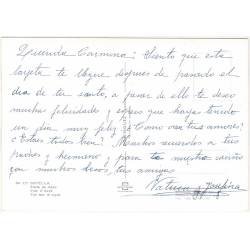 Querida Carmina: Siento que esta
tarjeta te llegue despues de pasado el
dia de tu santo, a pesar de ello te deseo
muchas felicidades y espero que hayas tenido
un dia muy feliz ¿Como van tus amores?
¿Estais todos bien? Muchos recuerdos a tus
padres y hermano y para ti mucho cariño
con muchos besos, tus amigas
y Josefina